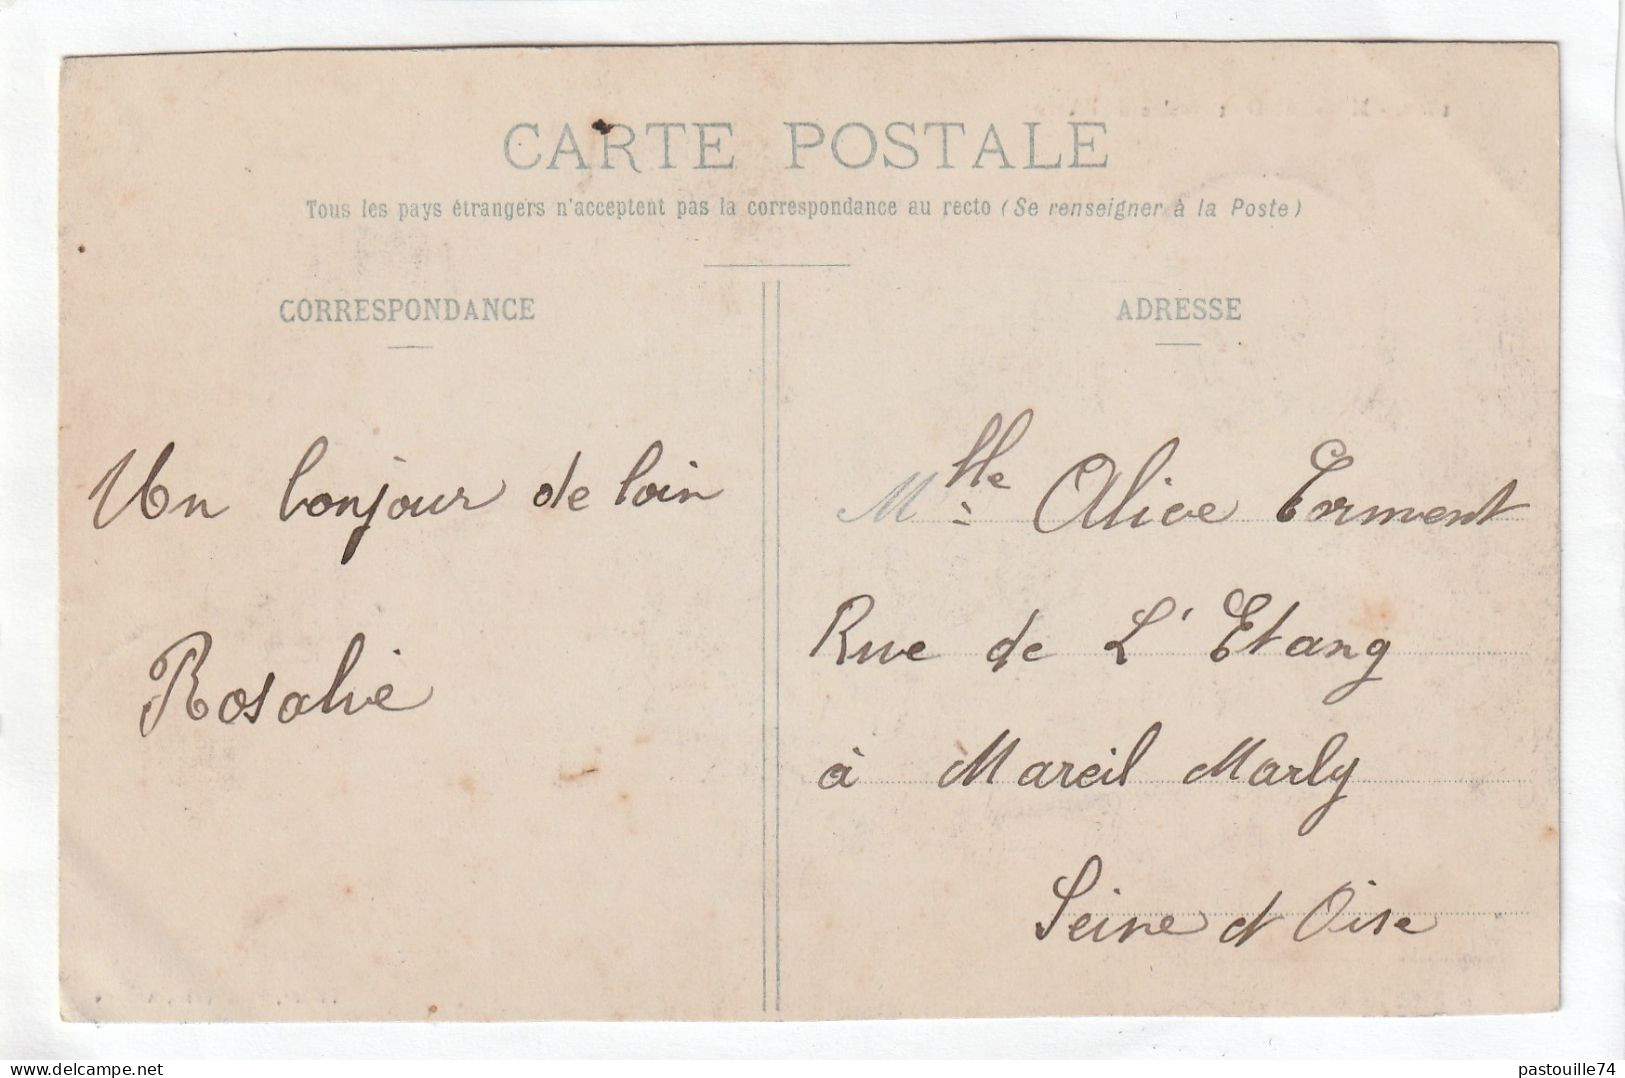 CARTE POSTALE
Tous les pays étrangers n'acceptent pas la correspondance au recto (Se renseigner à la Poste)
CORRESPONDANCE
Un bonjour de loin
Rosalie
ADRESSE
Mlle Alice Torment
Rue de L'Etang
à Mareil Marly
Seine et Oise
delcampe.net
pastouille74